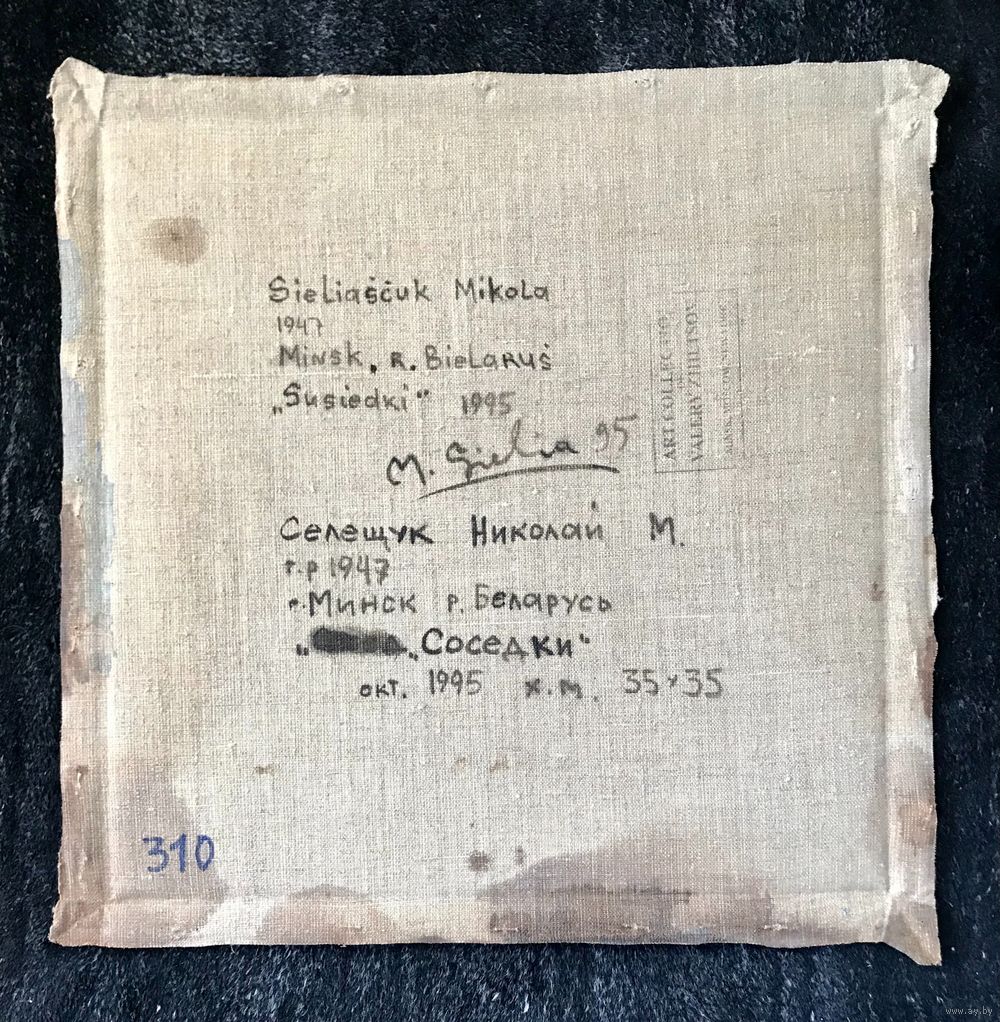 Sieliaščuk Mikola
1947
Minsk, R. Bielaruś
„Susiedki“ 1995
M. Sielia 95
ART COLLECTION
VALERY ZHILTSOV
Селещук Николай М.
г.р 1947
г. Минск р. Беларусь
„Соседки“
окт. 1995 х.м. 35×35
310
www.ay.by